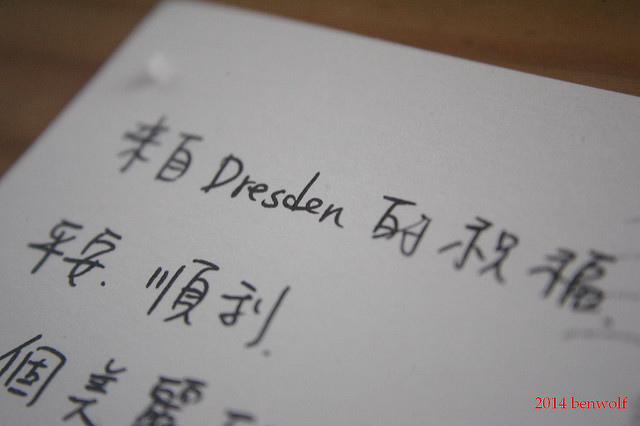 來自 Dresden 的祝福.
平安. 順利.
個美麗
2014 benwolf